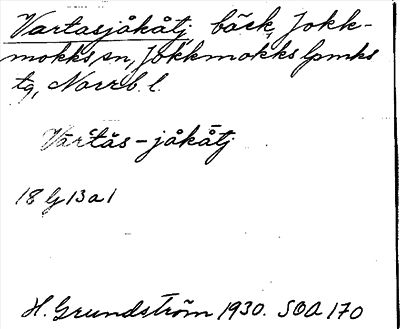 Vartasjåkåtj, bäck, Jokk-
mokks sn, Jokkmokks lpmks
tg, Norrb. l.
Vartas-jåkåtj
18 G 13 a 1
H. Grundström 1930. SOA 170